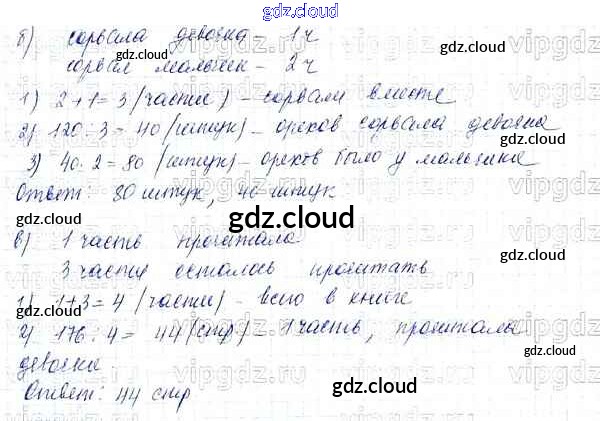 gdz.cloud
б) сорвала девочка - 1ч
gdz.cloud
сорвал мальчик - 2ч
1) 2+1=3 (части) - сорвали вместе
gdz.cloud
2) 120:3=40 (штук) - орехов сорвала девочка
3) 40·2=80 (штук) - орехов было у мальчика
gdz.cloud
Ответ: 80 штук, 40 штук
gdz.cloud
в) 1 часть прочитала
3 части осталось прочитать
gdz.cloud
1) 1+3=4 (части) - всего в книге
2) 176:4=44 (стр) - 1 часть, прочитала
gdz.cloud
девочка
gdz.cloud
Ответ: 44 стр
gdz.cloud